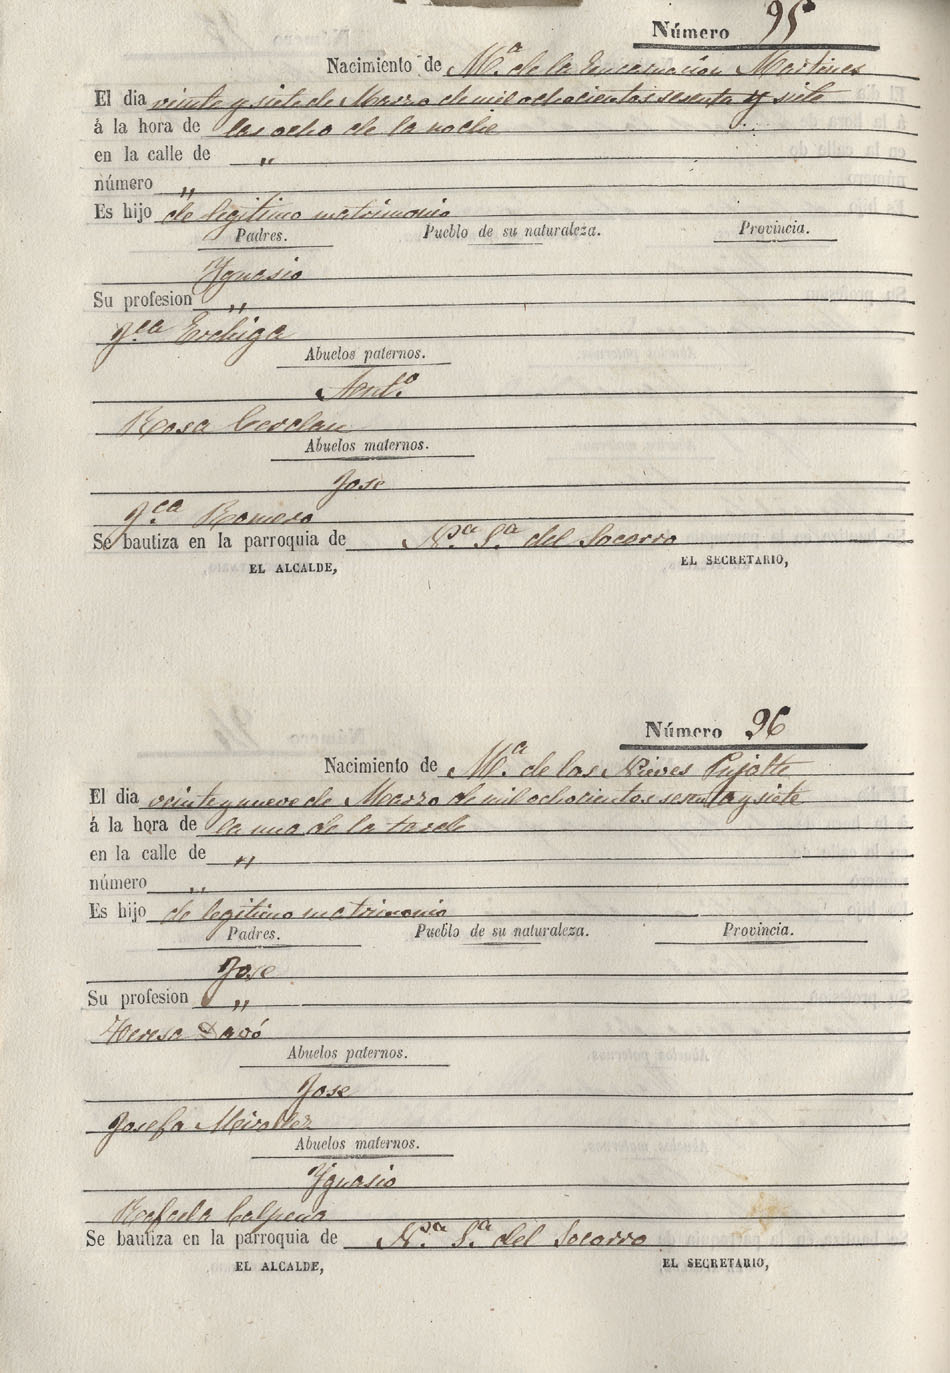 Número 95
Nacimiento de M.ª de la Encarnacion Martines
El dia veinte y siete de Marzo de mil ochocientos sesenta y siete
á la hora de las ocho de la noche
en la calle de "
número "
Es hijo de legitimo matrimonio
Padres. Pueblo de su naturaleza. Provincia.
Ygnasio
Su profesion "
Abuelos paternos.
Ant.º
Rosa Cerdan
Abuelos maternos.
Jose
J.ca Romero
Se bautiza en la parroquia de N.ra S.ra del Socorro
EL ALCALDE, EL SECRETARIO,
Número 96
Nacimiento de M.ª de las Nieves Pujalte
El dia veinte y nueve de Marzo de mil ochocientos sesenta y siete
á la hora de la una de la tarde
en la calle de "
número "
Es hijo de legitimo matrimonio
Padres. Pueblo de su naturaleza. Provincia.
Jose
Su profesion "
Teresa Davó
Abuelos paternos.
Jose
Josefa Miralles
Abuelos maternos.
Ygnasio
Rafaela Calpena
Se bautiza en la parroquia de N.ra S.ra del Socorro
EL ALCALDE, EL SECRETARIO,